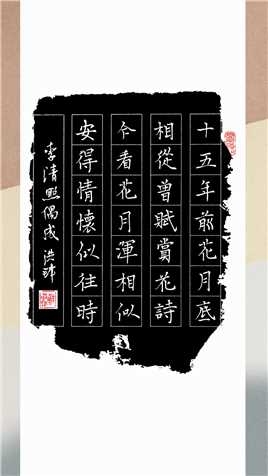 十五年前花月底
相從曾賦賞花詩
今看花月渾相似
安得情懷似往時
李清照偶成 洪沛